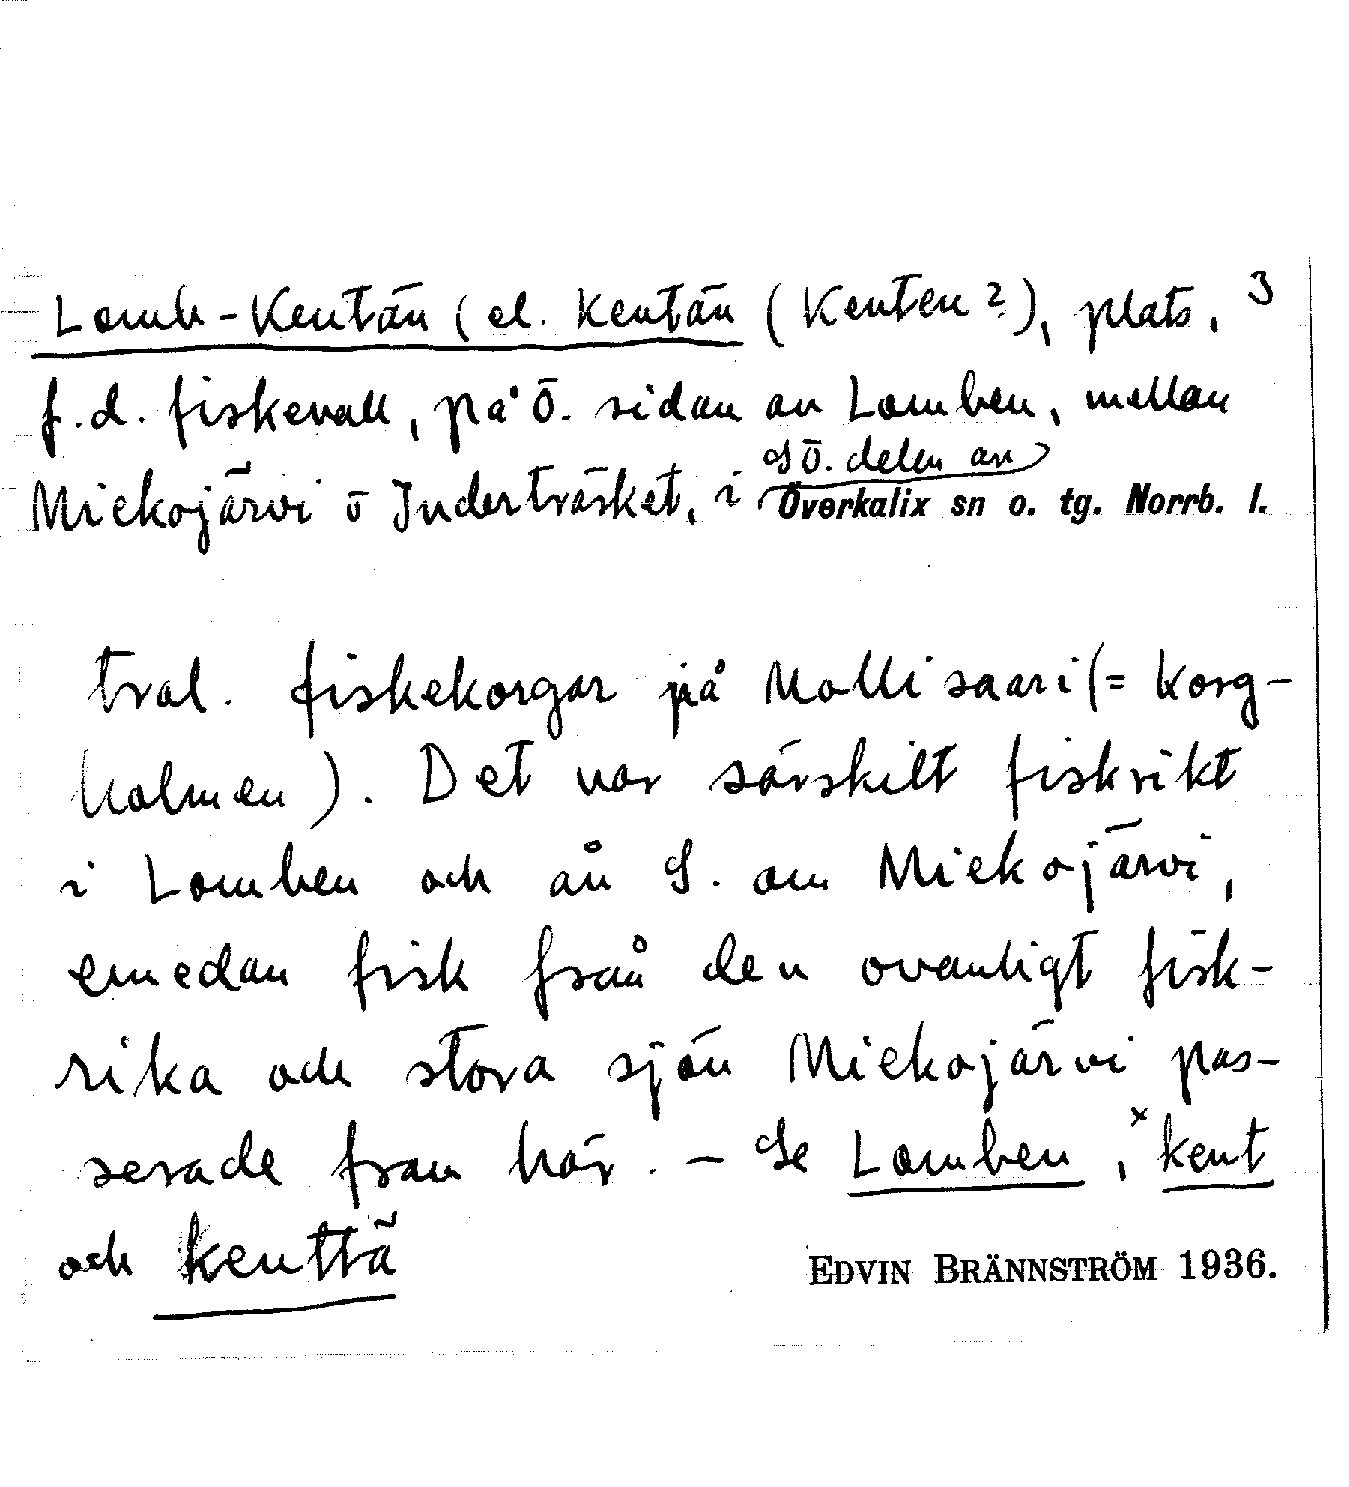 Lomb-Kentän (el. Kentän (Kenten?), plats, 3
f.d. fiskevall, på ö. sidan av Lomben, mellan
Miekojärvi o Inderträsket, i sö. delen av
Överkalix sn o. tg. Norrb. l.
tral. fiskekorgar på Mollisaari (= Korg-
holmen). Det var särskilt fiskrikt
i Lomben och ån S. om Miekojärvi,
emedan fisk från den ovanligt fisk-
rika och stora sjön Miekojärvi pas-
serade fram här. – Se Lomben, ˣkent
och kenttä
EDVIN BRÄNNSTRÖM 1936.